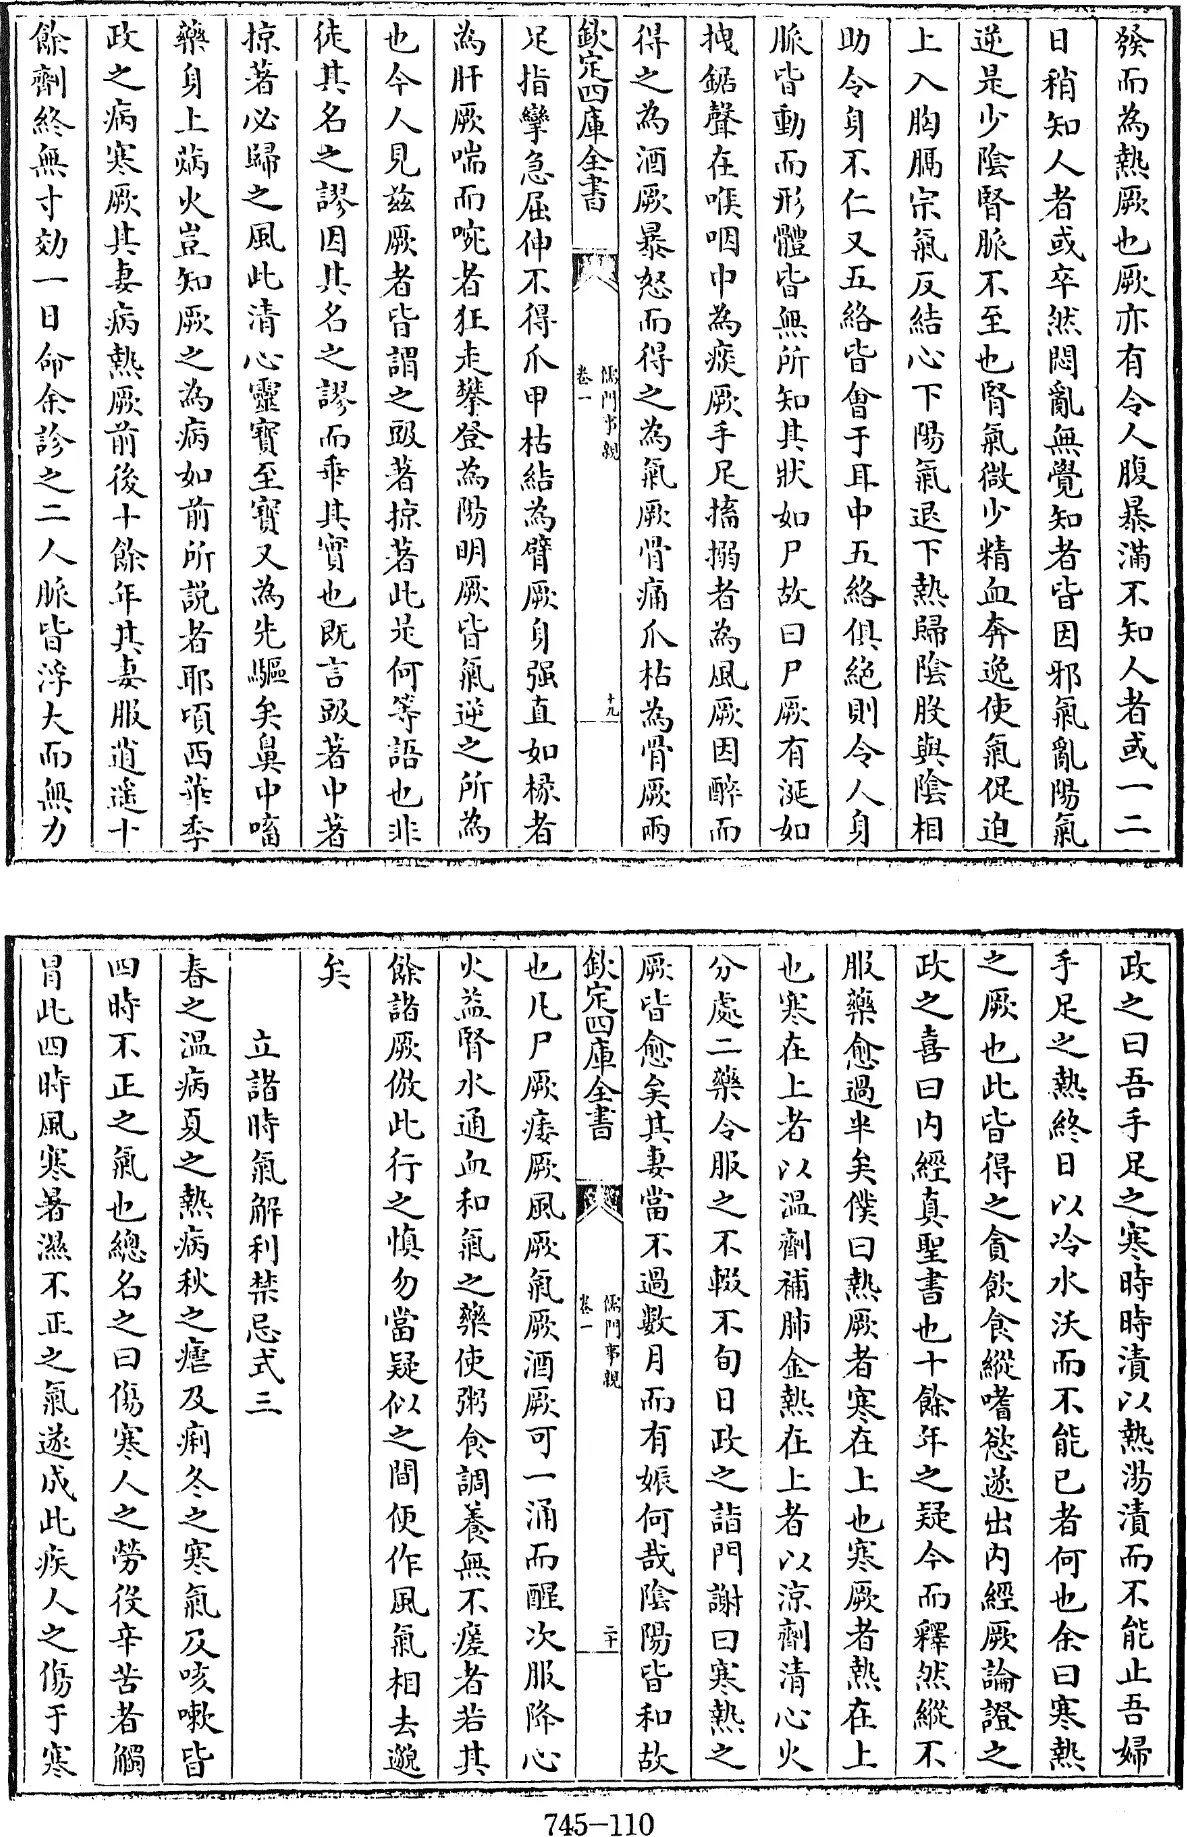 發而為熱厥也厥亦有令人腹暴滿不知人者或一二
日稍知人者或卒然悶亂無覺知者皆因邪氣亂陽氣
逆是少陰腎脈不至也腎氣微少精血奔逸使氣促迫
上入胸膈宗氣反結心下陽氣退下熱歸陰股與陰相
助令身不仁又五絡皆會于耳中五絡俱絶則令人身
脈皆動而形體皆無所知其狀如尸故曰尸厥有涎如
拽鋸聲在喉咽中為痰厥手足搐搦者為風厥因醉而
得之為酒厥暴怒而得之為氣厥骨痛爪枯為骨厥兩
欽定四庫全書
儒門事親
卷一
十九
足指攣急屈伸不得爪甲枯結為臂厥身强直如椽者
為肝厥喘而啘者狂走攀登為陽明厥皆氣逆之所為
也今人見兹厥者皆謂之㱔著掠著此是何等語也非
徒其名之謬因其名之謬而乖其實也既言㱔著中著
掠著必歸之風此清心靈寶至寶又為先驅矣鼻中㗜
藥身上焫火豈知厥之為病如前所説者耶頃西華季
政之病寒厥其妻病熱厥前後十餘年其妻服逍遥十
餘劑終無寸効一日命余診之二人脈皆浮大而無力
政之曰吾手足之寒時時漬以熱湯漬而不能止吾婦
手足之熱終日以冷水沃而不能已者何也余曰寒熱
之厥也此皆得之貪飲食縱嗜慾遂出内經厥論證之
政之喜曰内經真聖書也十餘年之疑今而釋然縱不
服藥愈過半矣僕曰熱厥者寒在上也寒厥者熱在上
也寒在上者以温劑補肺金熱在上者以涼劑清心火
分處二藥令服之不輟不旬日政之詣門謝曰寒熱之
厥皆愈矣其妻當不過數月而有娠何哉陰陽皆和故
欽定四庫全書
儒門事親
卷一
二十
也凡尸厥痿厥風厥氣厥酒厥可一涌而醒次服降心
火益腎水通血和氣之藥使粥食調養無不瘥者若其
餘諸厥倣此行之慎勿當疑似之間便作風氣相去邈
矣
立諸時氣解利禁忌式三
春之温病夏之熱病秋之瘧及痢冬之寒氣及咳嗽皆
四時不正之氣也總名之曰傷寒人之勞役辛苦者觸
冒此四時風寒暑濕不正之氣遂成此疾人之傷于寒
745-110